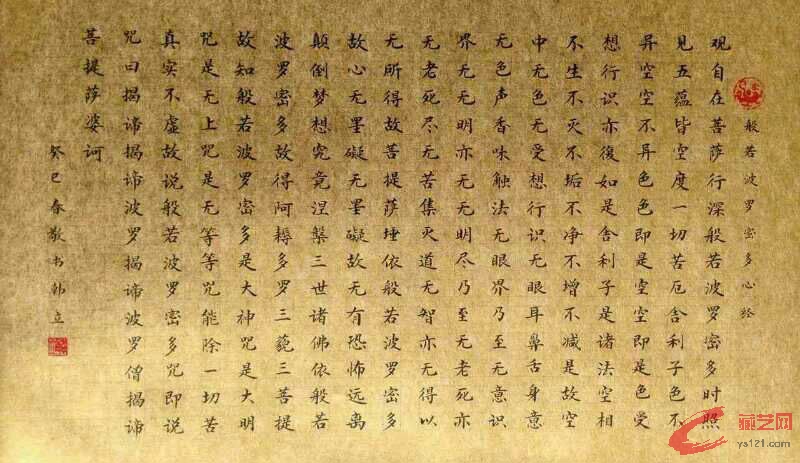 般若波罗密多心经
观自在菩萨行深般若波罗密多时照
见五蕴皆空度一切苦厄舍利子色不
异空空不异色色即是空空即是色受
想行识亦復如是舍利子是诸法空相
不生不灭不垢不净不增不减是故空
中无色无受想行识无眼耳鼻舌身意
无色声香味触法无眼界乃至无意识
界无无明亦无无明尽乃至无老死亦
无老死尽无苦集灭道无智亦无得以
无所得故菩提萨埵依般若波罗密多
故心无墨礙无墨礙故无有恐怖远离
颠倒梦想究竟涅槃三世诸佛依般若
波罗密多故得阿耨多罗三藐三菩提
故知般若波罗密多是大神咒是大明
咒是无上咒是无等等咒能除一切苦
真实不虚故说般若波罗密多咒即说
咒曰揭谛揭谛波罗揭谛波罗僧揭谛
菩提萨婆诃
癸巳春敬书韩立
藏艺网
ys121.com